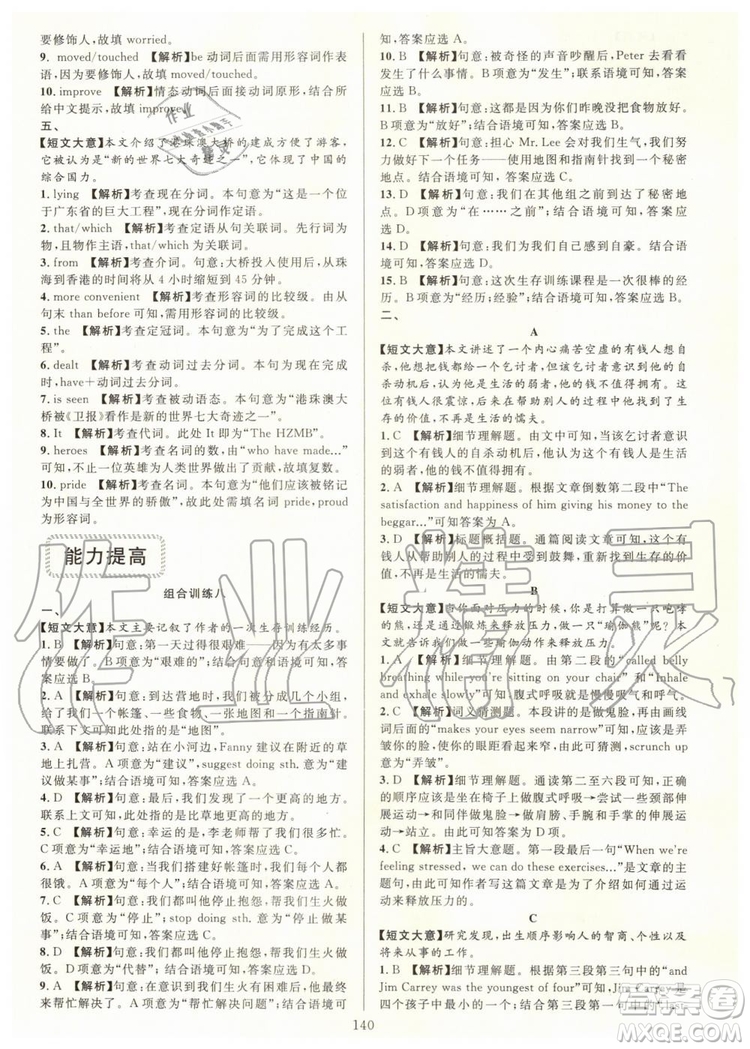 要修饰人，故填 worried。
9. moved/touched 【解析】be 动词后面需用形容词作表
语，因为要修饰人，故填 moved/touched。
10. improve 【解析】情态动词后面接动词原形，结合所
给中文提示，故填 improve。
五、
【短文大意】本文介绍了港珠澳大桥的建成方便了游客，
它被称为“新的世界七大奇迹之一”，它体现了中国的
综合国力。
1. lying 【解析】考查现在分词。本句意为“这是一个位
于广东省的巨大工程”，现在分词作定语。
2. that/which 【解析】考查定语从句关联词。先行词为
物，且物作主语，故用 that/which。
3. from 【解析】考查介词。本句意为：大桥投入使用后，从珠
海到香港的时间将从 4 小时缩短到 45 分钟。
4. more convenient 【解析】考查形容词的比较级。由从
句末 than before 可知，此处用形容词的比较级。
5. the 【解析】考查定冠词。本句意为“为了完成这个工
程”，故填定冠词。
6. dealt 【解析】考查动词过去分词。本句为现在完成
时，have＋动词过去分词。
7. is seen 【解析】考查被动语态。本句意为“港珠澳大
桥被《卫报》看作是新的世界七大奇迹之一”。
8. It 【解析】考查代词。此处 It 即为“The HZMB”。
9. heroes 【解析】考查名词复数。由“who have made…”可
知，不止一位英雄为人类做出了贡献，故填复数。
10. pride 【解析】考查名词。本句意为“他们应该被铭记
为中国与全世界的骄傲”，故此处需填名词 pride，proud
为形容词。
能力提高
组合训练八
一、
【短文大意】本文主要记叙了作者的一次生存训练经历。
1. B 【解析】句意：但是事实上是很艰难的，因为有太多事
情要做了。B 项意为“艰难的”；结合语境可知，答案
应选 B。
2. A 【解析】句意：到达营地时，我们被分成几个小组，
给了我们一个帐篷、一些食物、一张地图和一个指南针。
联系下文可知，此处是指“地图”。
3. A 【解析】句意：站在小河边，Fanny 建议在附近的草地
上扎营。A 项意为“建议”，suggest doing sth. 意为“建议做
某事”；结合语境可知，答案应选 A。
4. D 【解析】句意：我想要找到一个更高的地方。
联系上文可知，此处是指比草地更高的地方。
5. D 【解析】句意：幸运的是，李老师帮了我们很多忙。
D 项意为“幸运地”；结合语境可知，答案应选 D。
6. A 【解析】句意：当我们搭建好帐篷时，我们每个人都
很饿。A 项意为“每个人”；结合语境可知，答案应选 A。
7. C 【解析】句意：我们都叫他停止抱怨，帮我们生火做
饭。C 项意为“停止”；stop doing sth. 意为“停止做某
事”；结合语境可知，答案应选 C。
8. D 【解析】句意：我们都叫他停止抱怨，帮我们生火做
饭。D 项意为“代替”；结合语境可知，答案应选 D。
9. A 【解析】句意：当我们意识到这个问题时，李老师过
来帮忙解决了。A 项意为“帮忙解决问题”；结合语境可
知，答案应选 A。
10. B 【解析】句意：被奇怪的声音吵醒后，Peter 去看看
发生了什么事情。B 项意为“发生”；联系语境可知，答案
应选 B。
11. B 【解析】句意：因为我们昨晚没把食物放好。
B 项意为“放好”；结合语境可知，答案应选 B。
12. C 【解析】句意：担心 Mr. Lee 对我们生气，我们开始了
下一个任务——使用地图和指南针找到一个秘密地点。
C 项意为“开始”；结合语境可知，答案应选 C。
13. D 【解析】句意：我们在其他组之前到达了秘密地
点。D 项意为“在……之前”；结合语境可知，答案应
选 D。
14. D 【解析】句意：我们为自己感到自豪。结合语境
可知，答案应选 D。
15. B 【解析】句意：这次生存训练课程是一次很棒的经
历。B 项意为“经历；经验”；结合语境可知，答案应选 B。
二、
A
【短文大意】本文讲述了一个内心痛苦空虚的有钱人想自
杀，余前，他把钱给一个乞讨者，并告诉这个乞讨者他的
自杀动机后，乞讨者认为他是生活的弱者，是个懦夫。
这位有钱人很震惊，后来在帮助别人的过程中找到了生
存的价值，不再是生活的懦夫。
1. C 【解析】细节理解题。根据短文可知，当该乞讨者意识
到这个有钱人的自杀行为后，他认为这个有钱人是生活
的弱者，故答案为 C。
2. A 【解析】细节理解题。根据文章倒数第二段中“The
satisfaction and happiness of him giving his money to the
beggar…”可知答案为 A。
3. D 【解析】标题概括题。通篇阅读文章可知，这个有
钱人从帮助别人的过程中受到鼓舞，重新找到生存的价
值，不再是生活的懦夫。
B
1. A 【解析】细节理解题。由第二段的“called belly
breathing while you're sitting on your chair”和“Inhale
and exhale slowly”可知腹式呼吸就是慢慢吸气和呼气。
2. C 【解析】词义猜测题。本段讲的是做鬼脸，由画线
词后面的“makes your eyes seem narrow”可知，是要弄
皱你的脸，让你的眼睛看起来窄，可知，scrunch up
意为“弄皱”。
3. D 【解析】细节理解题。通读第二至六段可知，正确
的顺序应该是坐在椅子上做腹式呼吸→尝试一些伸展
运动→站起来并同样做鬼脸→做肩膀、手腕和手的伸展
运动→站立，故答案为 D 项。
4. C 【解析】主旨大意题。第一段最后一句“When we're
feeling stressed, we can do these exercises…”是文章的主
题句，由此可知，作者写这篇文章是为了介绍如何通过运
动来释放压力的。
C
【短文大意】研究发现，出生顺序影响人的智商、性格以及
将来从事的工作。
1. B 【解析】细节理解题。根据第三段第三句中的“and
Jim Carrey was the youngest of four”可知，Jim Carrey 是
140